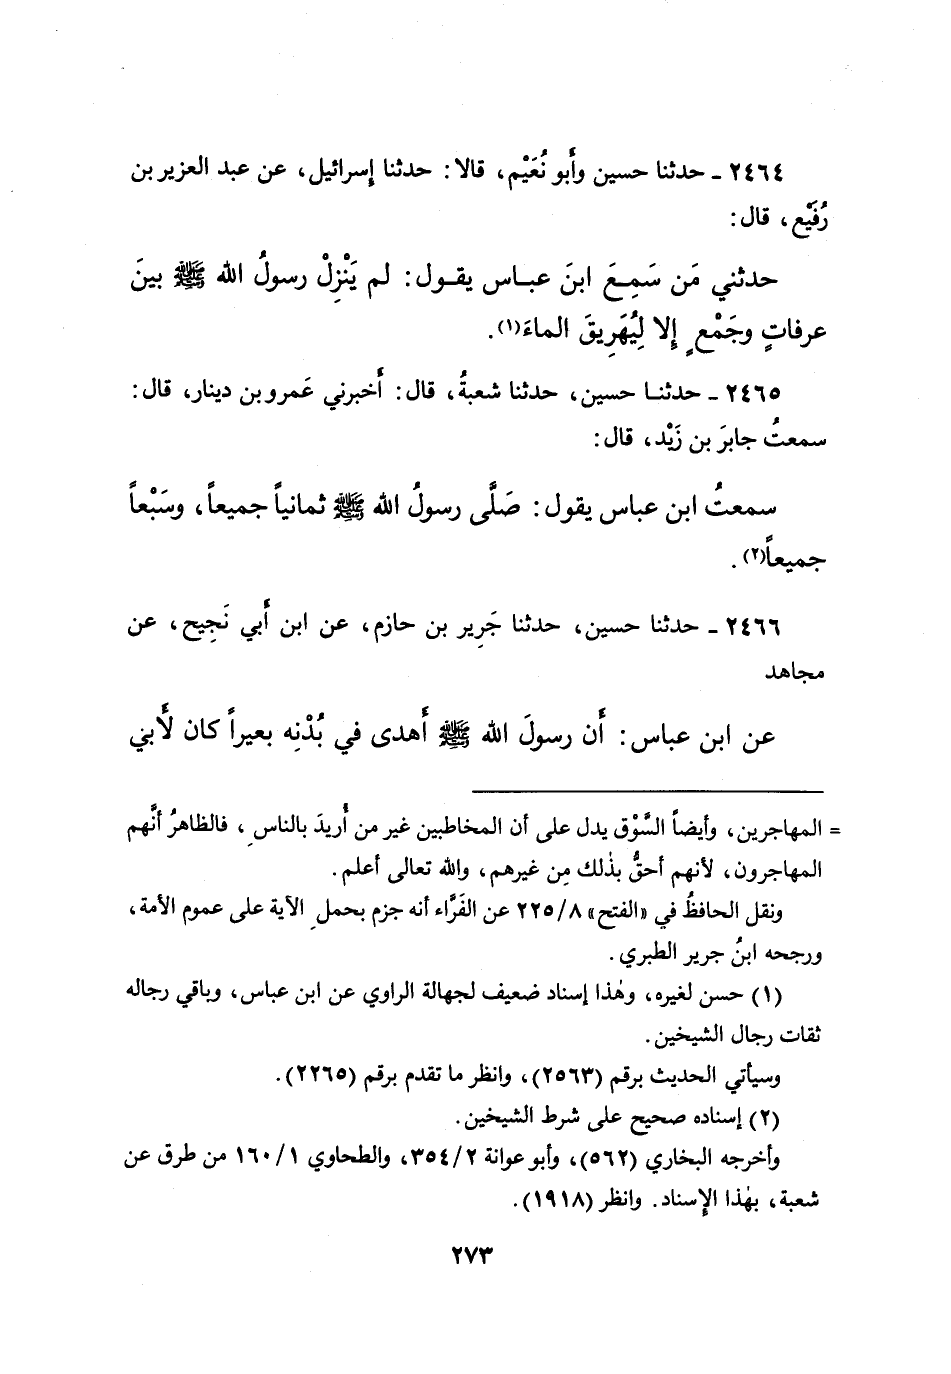 ٢٤٦٤ ـ حدثنا حسين وأَبو نُعَيْم، قالا: حدثنا إسرائيل، عن عبد العزيز بن
رُفَيْع، قال:
حدثني مَن سَمِعَ ابنَ عباس يقول: لم يَنْزِلْ رسولُ الله ﷺ بينَ
عرفاتٍ وجَمْعٍ إلا لِيُهَرِيقَ الماءَ(١).
٢٤٦٥ ـ حدثنا حسين، حدثنا شعبةُ، قال: أَخبرني عَمرو بن دينار، قال:
سمعتُ جابرَ بن زَيْد، قال:
سمعتُ ابن عباس يقول: صَلَّى رسولُ الله ﷺ ثمانياً جميعاً، وسَبْعاً
جميعاً(٢).
٢٤٦٦ ـ حدثنا حسين، حدثنا جَرِير بن حازم، عن ابن أَبي نَجِيح، عن
مجاهد
عن ابن عباس: أَن رسولَ الله ﷺ أَهدى في بُدْنِه بعيراً كان لأَبي
= المهاجرين، وأيضاً السَّوْق يدل على أن المخاطبين غير من أُريدَ بالناسِ، فالظاهرُ أنَّهم
المهاجرون، لأنهم أحقُّ بذٰلك مِن غيرهم، والله تعالى أعلم.
ونقل الحافظُ في «الفتح» ٢٢٥/٨ عن الفَرَّاء أنه جزم بحملِ الآية على عموم الأمة،
ورجحه ابنُ جرير الطبري.
(١) حسن لغيره، وهٰذا إسناد ضعيف لجهالة الراوي عن ابن عباس، وباقي رجاله
ثقات رجال الشيخين.
وسيأتي الحديث برقم (٢٥٦٣)، وانظر ما تقدم برقم (٢٢٦٥).
(٢) إسناده صحيح على شرط الشيخين.
وأخرجه البخاري (٥٦٢)، وأبو عوانة ٣٥٤/٢، والطحاوي ١٦٠/١ من طرق عن
شعبة، بهٰذا الإسناد. وانظر (١٩١٨).
٢٧٣